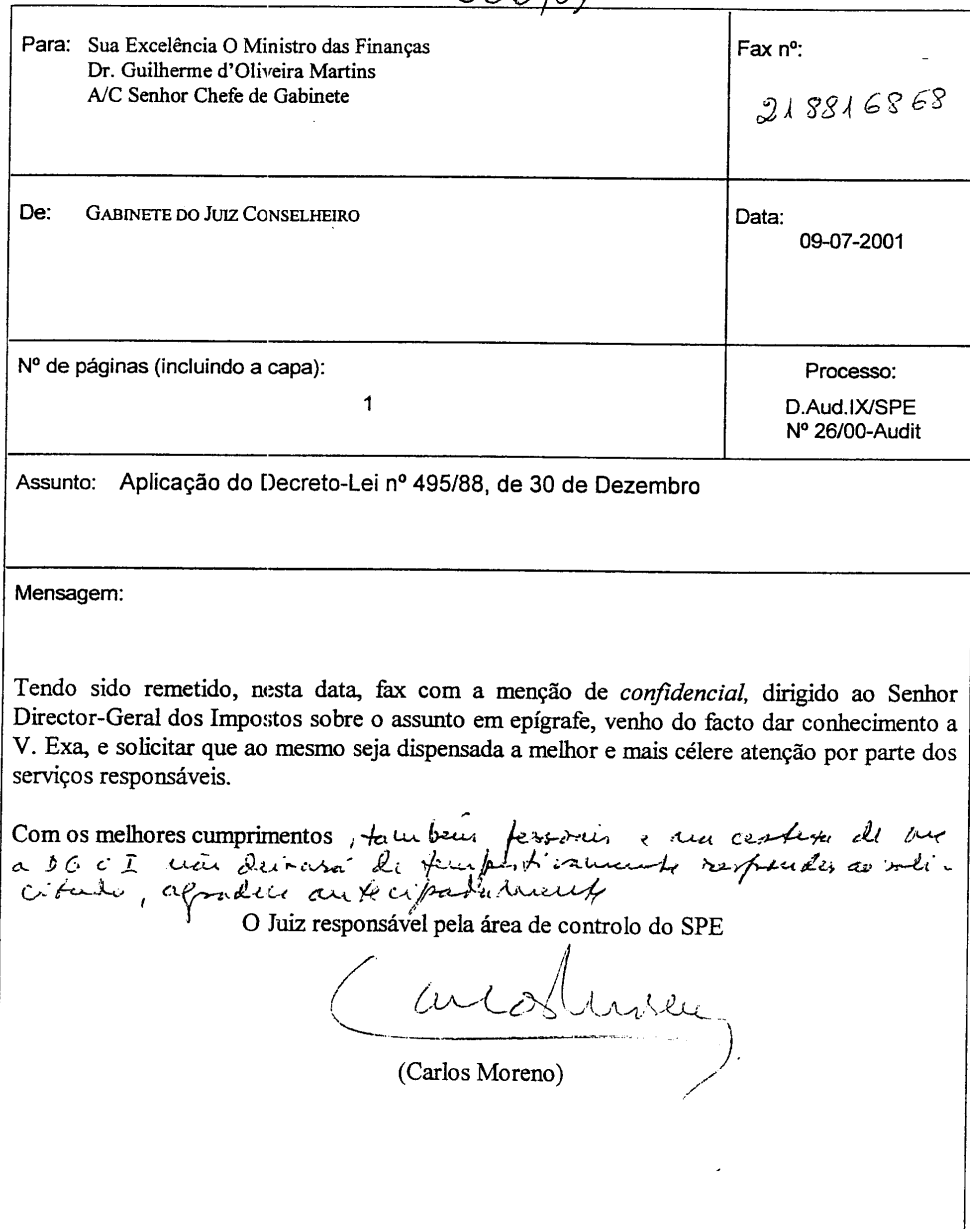 Para: Sua Excelência O Ministro das Finanças
Dr. Guilherme d'Oliveira Martins
A/C Senhor Chefe de Gabinete
Fax nº:
218816868
De: GABINETE DO JUIZ CONSELHEIRO
Data:
09-07-2001
Nº de páginas (incluindo a capa):
1
Processo:
D.Aud.IX/SPE
Nº 26/00-Audit
Assunto: Aplicação do Decreto-Lei nº 495/88, de 30 de Dezembro
Mensagem:
Tendo sido remetido, nesta data, fax com a menção de confidencial, dirigido ao Senhor
Director-Geral dos Impostos sobre o assunto em epígrafe, venho do facto dar conhecimento a
V. Exa, e solicitar que ao mesmo seja dispensada a melhor e mais célere atenção por parte dos
serviços responsáveis.
Com os melhores cumprimentos, também pessoais e na certeza de que
a DGCI não deixará de tempestivamente responder ao soli-
citado, agradece antecipadamente
O Juiz responsável pela área de controlo do SPE
(Carlos Moreno)